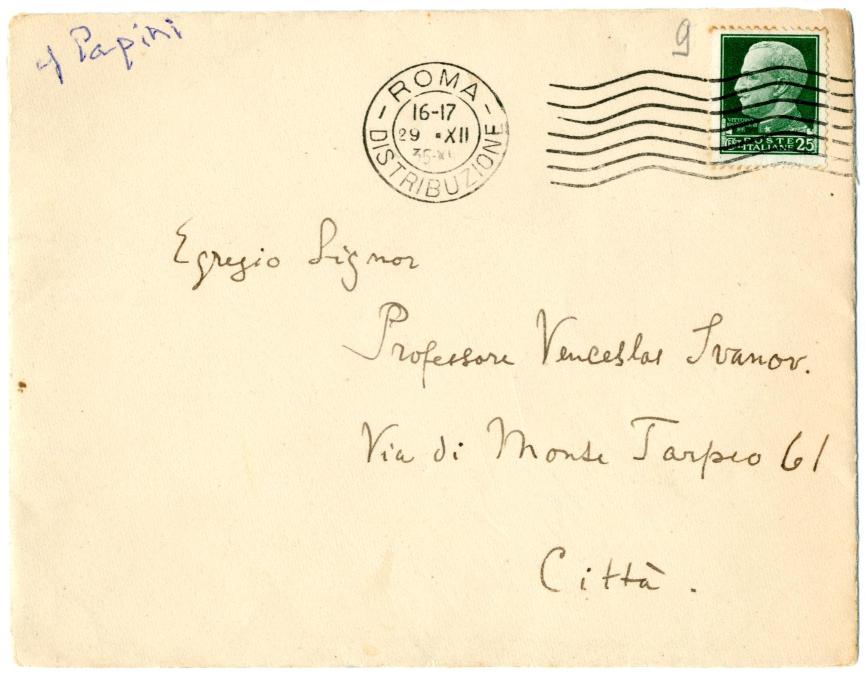 Papini
9
ROMA
16-17
29 · XII
35-XI
DISTRIBUZIONE
POSTE
ITALIANE 25
Egregio Signor
Professore Venceslas Ivanov.
Via di Monte Tarpeo 61
Città.